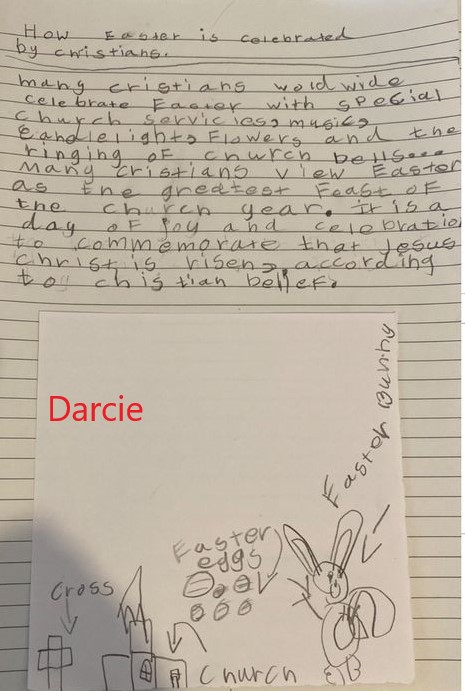 How Easter is celebrated
by cristians.
many cristians woldwide
celebrate Easter with special
church services, music,
candlelight, Flowers and the
ringing of church bells...
Many cristians view Easter
as the greatest Feast of
the church year. it is a
day of joy and celebratio
to commemorate that Jesus
christ is risen, according
to chistian belief.
Darcie
Easter Bunny
Easter
eggs
Cross
Church